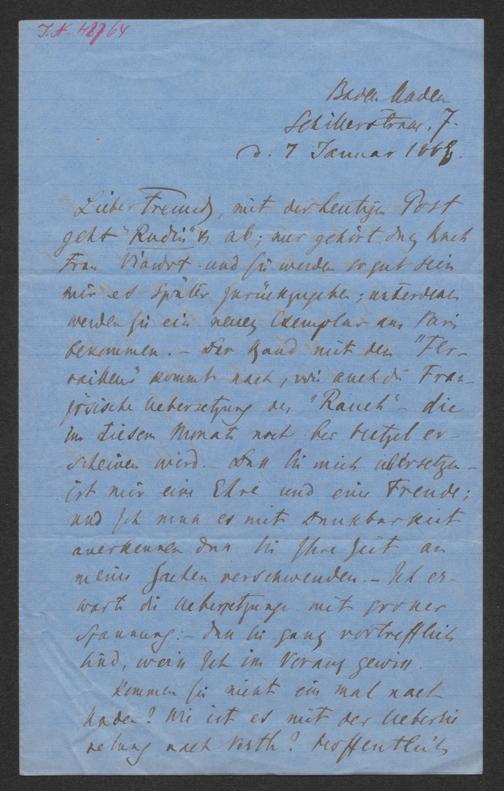 Baden Baden
Schillerstrasse, 7.
d. 7 Januar 1868.
Lieber Freund, mit der heutigen Post
geht "Rudin" ab; nur gehört das Buch
Frau Viardot und Sie werden so gut sein
mir es später zurückzugeben; unterdessen
werden Sie ein neues Exemplar aus Paris
bekommen. – Der Band mit den
kommt nach, wie auch die Fran-
zösische Uebersetzung des "Rauch" – die
im diesem Monate noch bei Hetzel er-
scheinen wird. – Dass Sie mich übersetzen –
ist mir eine Ehre und eine Freude;
und ich muss es mit Dankbarkeit
anerkennen dass Sie Ihre Zeit an
meine Sachen verschwenden. – Ich er-
warte die Uebersetzunge mit grosser
Spannung: – dass Sie ganz vortrefflich
sind, weiss Ich im Voraus gewiss.
Kommen Sie nicht ein mal nach
Baden? Wie ist es mit der Uebersie
delung nach ? Hoffentlich